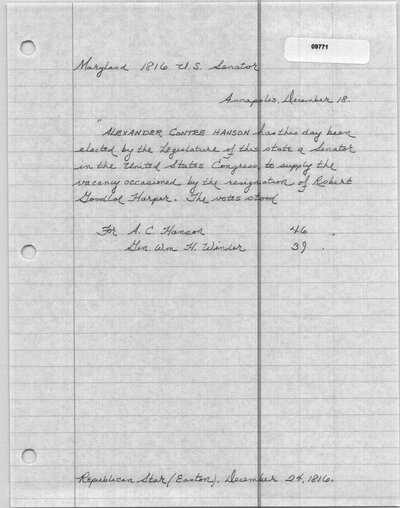 09771
Maryland 1816 U.S. Senator
Annapolis, December 18.
"ALEXANDER CONTEE HANSON has this day been
elected by the Legislature of this state a Senator
in the United States Congress, to supply the
vacancy occasioned by the resignation of Robert
Goodloe Harper. The votes stood
For A. C. Hanson 46 "
Gen. Wm H. Winder 39 .
Republican Star (Easton). December 24, 1816.